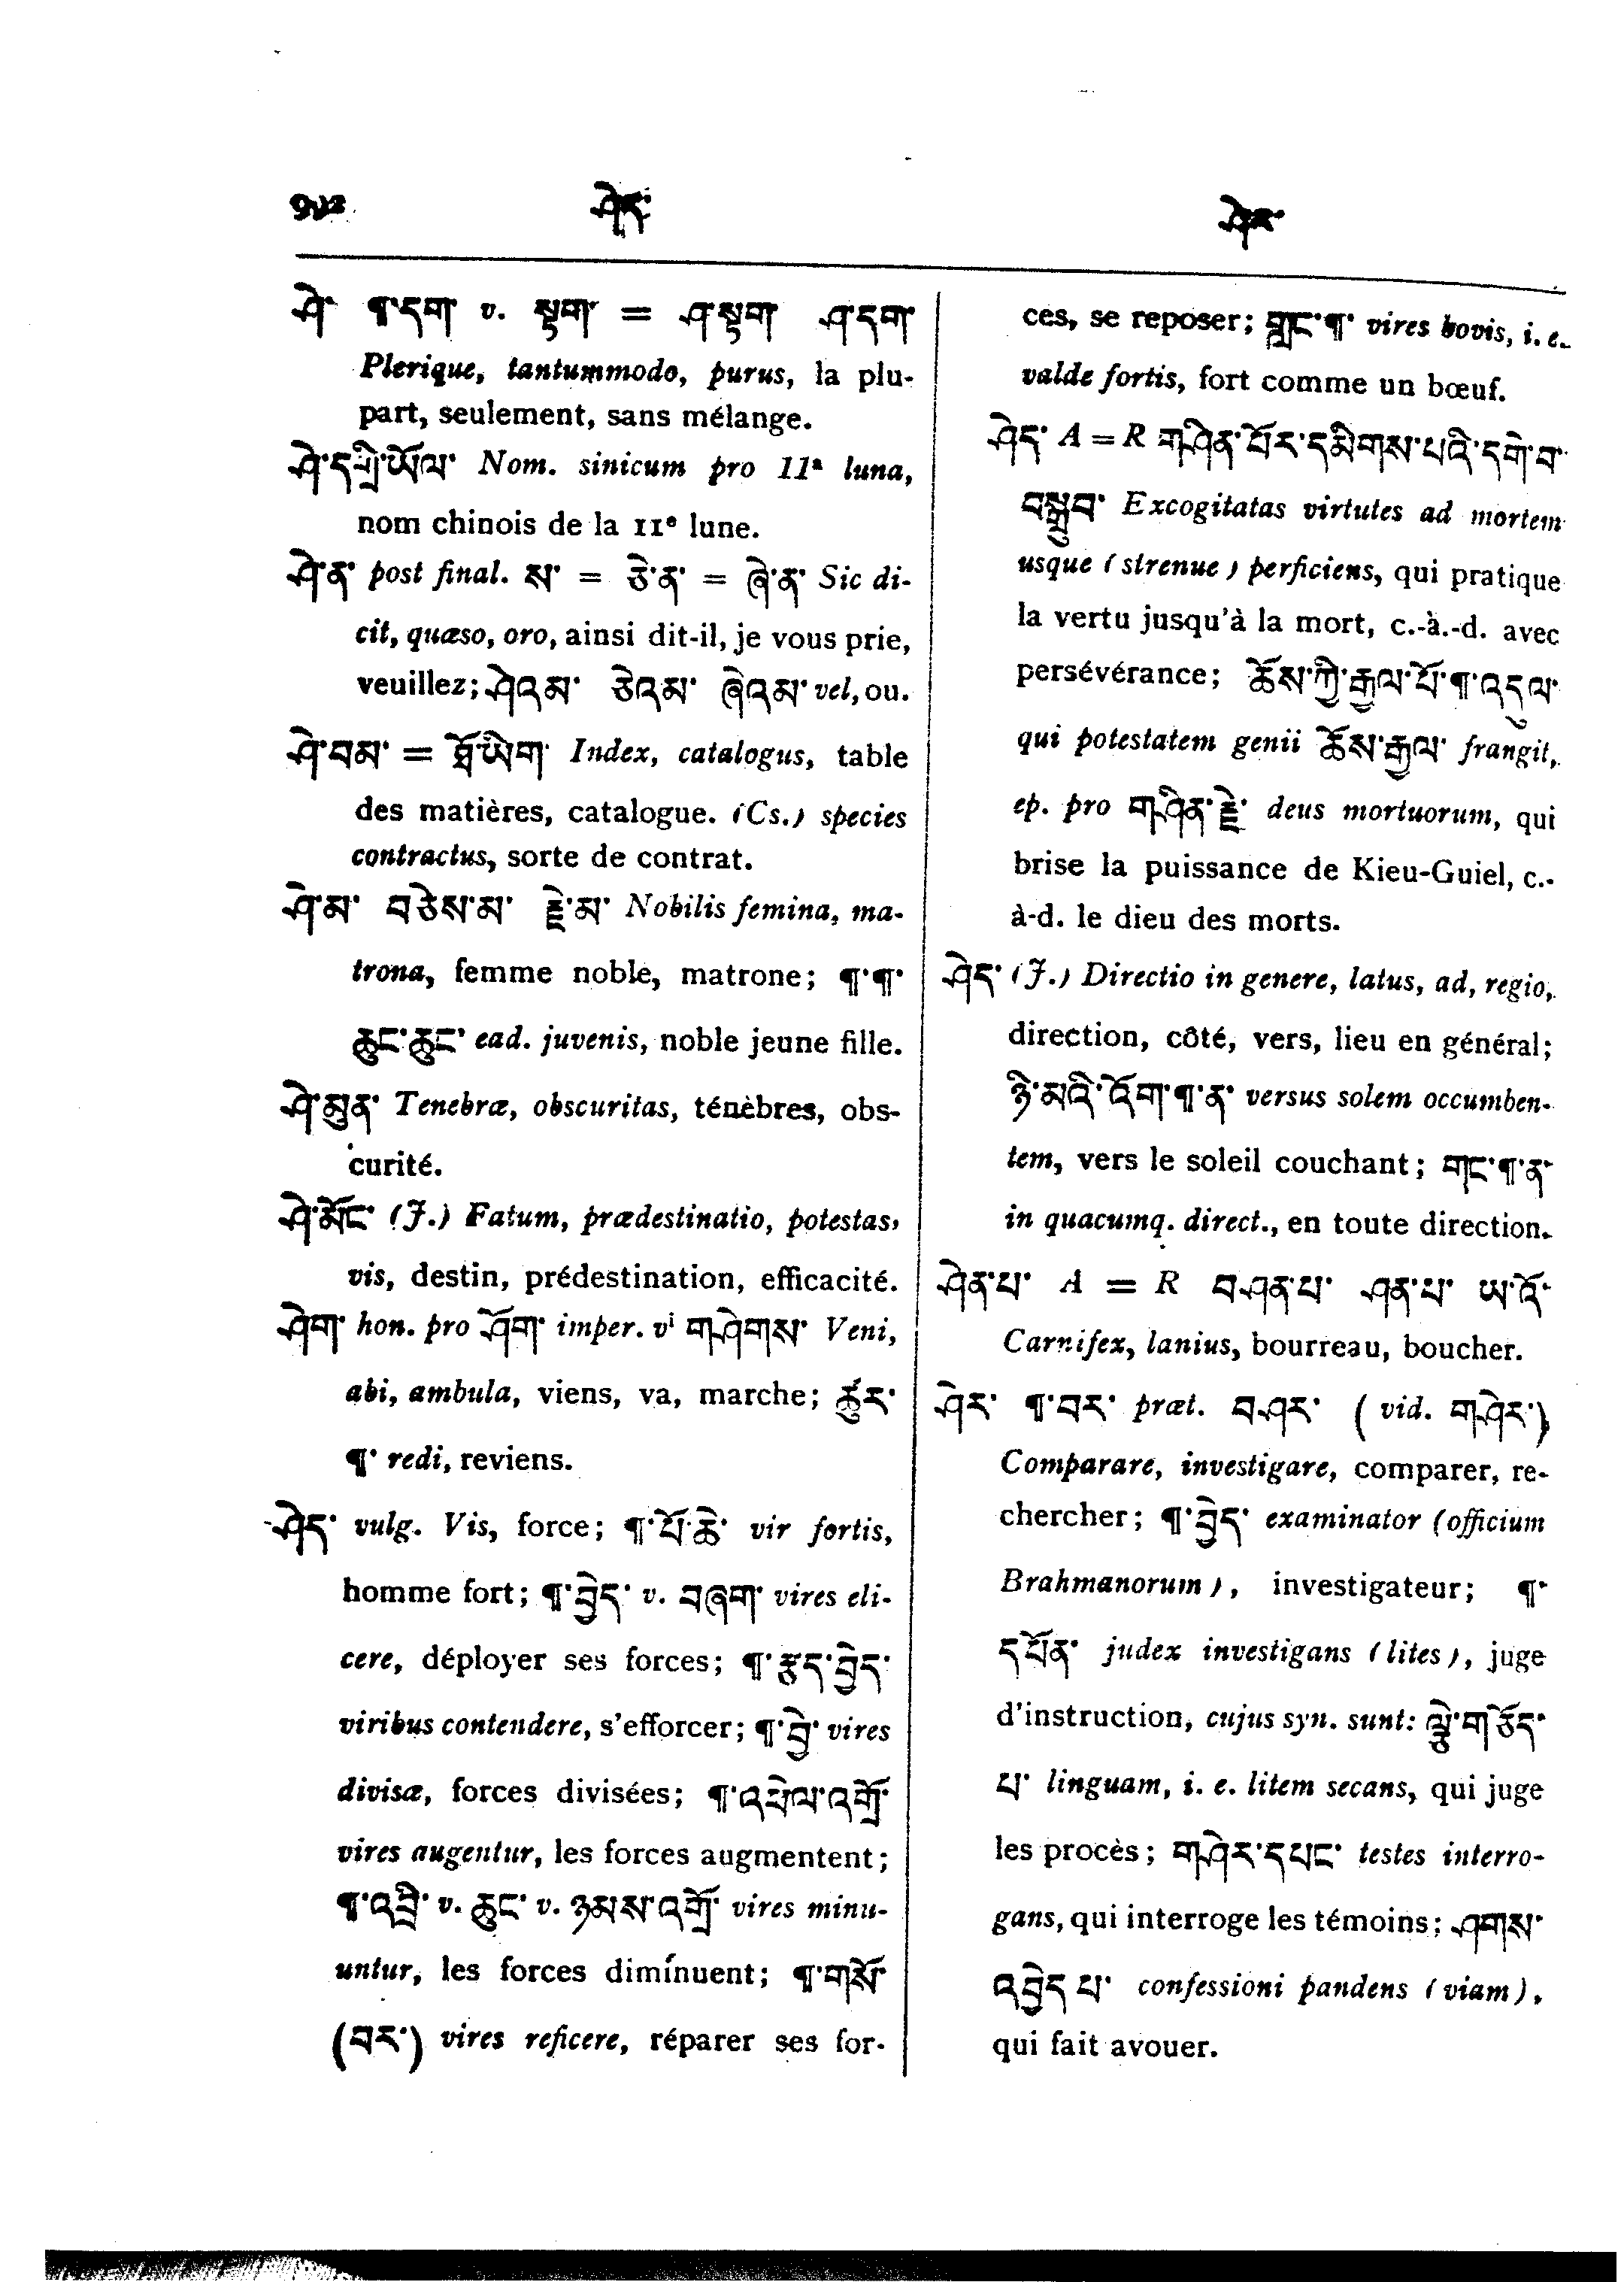 ཤེད་
ཤེར་
ཤེ་ ¶་དག་ v. སྟག་ = ཤ་སྟག་ ཤ་དག་
Plerique, tantummodo, purus, la plu-
part, seulement, sans mélange.
ཤེ་དཀྲི་ཡོལ་ Nom. sinicum pro 11ª luna,
nom chinois de la 11ᵉ lune.
ཤེ་ན་ post final. ས་ = ཅེ་ན་ = ཞེ་ན་ Sic di-
cit, quæso, oro, ainsi dit-il, je vous prie,
veuillez; ཤེའམ་ ཅེའམ་ ཞེའམ་ vel, ou.
ཤེ་བམ་ = ཐོ་ཡིག་ Index, catalogus, table
des matières, catalogue. (Cs.) species
contractus, sorte de contrat.
ཤེ་མ་ བཅེས་མ་ རྗེ་མ་ Nobilis femina, ma-
trona, femme noble, matrone; ¶་¶་
ཆུང་ཆུང་ ead. juvenis, noble jeune fille.
ཤེ་མུན་ Tenebræ, obscuritas, ténèbres, obs-
curité.
ཤེ་མོང་ (J.) Fatum, prædestinatio, potestas,
vis, destin, prédestination, efficacité.
ཤེག་ hon. pro ཤོག་ imper. vⁱ གཤེགས་ Veni,
abi, ambula, viens, va, marche; ཚུར་
¶་ redi, reviens.
ཤེད་ vulg. Vis, force; ¶་པོ་ཆེ་ vir fortis,
homme fort; ¶་བྱེད་ v. བཞག་ vires eli-
cere, déployer ses forces; ¶་རྩད་བྱེད་
viribus contendere, s'efforcer; ¶་བྱེ་ vires
divisæ, forces divisées; ¶་འཕེལ་འགྲོ་
vires augentur, les forces augmentent;
¶་འབྲི་ v. ཆུང་ v. ཉམས་འགྲོ་ vires minu-
untur, les forces diminuent; ¶་གསོ་
(བར་) vires reficere, réparer ses for-
ces, se reposer; གླང་¶་ vires bovis, i. e.
valde fortis, fort comme un bœuf.
ཤེད་ A = R གཤིན་པོར་དམིགས་པའི་དགེ་བ་
བསྒྲུབ་ Excogitatas virtutes ad mortem
usque (strenue) perficiens, qui pratique
la vertu jusqu'à la mort, c.-à.-d. avec
persévérance; ཆོས་ཀྱི་རྒྱལ་པོ་¶་འདུལ་
qui potestatem genii ཆོས་རྒྱལ་ frangit,
ep. pro གཤིན་རྗེ་ deus mortuorum, qui
brise la puissance de Kieu-Guiel, c.-
à-d. le dieu des morts.
ཤེད་ (J.) Directio in genere, latus, ad, regio,
direction, côté, vers, lieu en général;
ཉི་མའི་འོག་¶་ན་ versus solem occumben-
tem, vers le soleil couchant; གང་¶་ན་
in quacumq. direct., en toute direction.
ཤེན་པ་ A = R བཤན་པ་ ཤན་པ་ ཡ་འོ་
Carnifex, lanius, bourreau, boucher.
ཤེར་ ¶་བར་ præt. བཤར་ (vid. གཤེར་)
Comparare, investigare, comparer, re-
chercher; ¶་བྱེད་ examinator (officium
Brahmanorum), investigateur; ¶་
དཔོན་ judex investigans (lites), juge
d'instruction, cujus syn. sunt: ལྕེ་གཅོད་
པ་ linguam, i. e. litem secans, qui juge
les procès; གཤེར་དཔང་ testes interro-
gans, qui interroge les témoins; ཤགས་
འབྱེད་པ་ confessioni pandens (viam),
qui fait avouer.